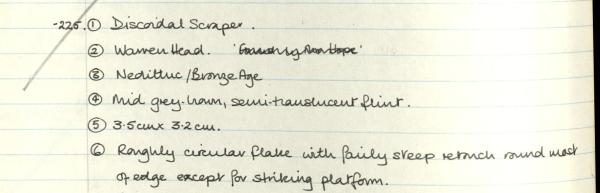 -225. ① Discoidal Scraper.
② Warren Head.
③ Neolithic/Bronze Age
④ Mid grey-brown, semi-translucent flint.
⑤ 3.5cm x 3.2cm.
⑥ Roughly circular flake with fairly steep retouch round most
of edge except for striking platform.